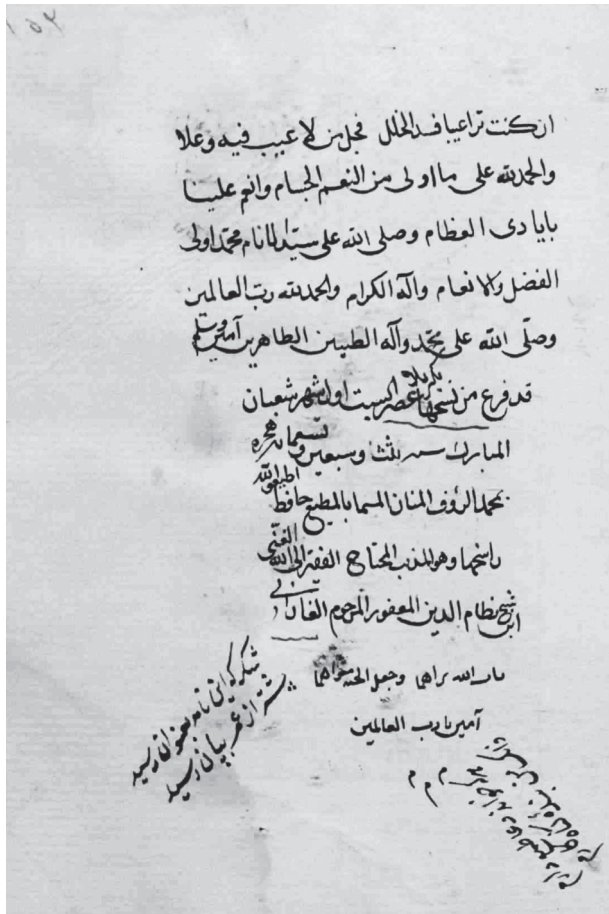 ان كنت تراعيبا فسد الخلل فجل من لا عيب فيه وعلا
والحمد لله على ما اولى من النعم الجسام وانعم علينا
بايادى العظام وصلى الله على سيد الانام محمد اولى
الفضل والانعام وآله الكرام والحمد لله رب العالمين
وصلّى الله على محمّد وآله الطيبين الطاهرين آمين
قد فرغ من نسخها عصر السبت اول شهر شعبان
المبارك سنه ثلث وسبعين وتسعمائه هجره
بحمد الرؤف المنان المسما بالمطيع حافظ
ناسخها وهو المذنب المحتاج الفقير الى الله الغنى
ابن شيخ نظام الدين المغفور المرحوم
بارك الله وجعل الجنة
آمين يا رب العالمين
شكر كه اين نامه بعنوان رسيد
پيشتر از عمر بپايان رسيد